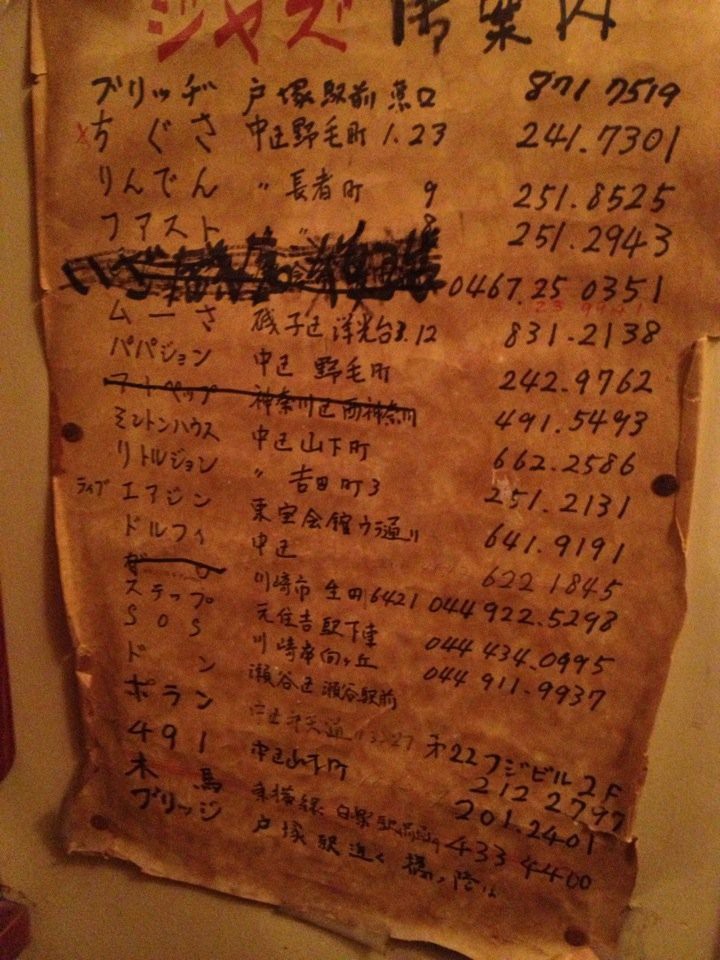 ジャズ 店案内
ブリッヂ 戸塚駅前 東口 871 7519
×ちぐさ 中区野毛町 1.23 241.7301
りんでん 〃 長者町 9 251.8525
ファスト 〃 8 251.2943
0467.25 0351
ムーさ 磯子区 洋光台3.12 831.2138
パパジョン 中区 野毛町 242.9762
神奈川区西神奈川 491.5493
ミントンハウス 中区山下町 662.2586
リトルジョン 〃 吉田町3 251.2131
ライブ エアジン 641.9191
ドルフィ 中区 622 1845
ステップ 川崎市 生田6421 044 922.5298
SOS 元住吉駅下車 044 434.0995
ドン 川崎市向ヶ丘 044 911.9937
ポラン 瀬谷区瀬谷駅前
491 中区弁天通 3.27 オ22フジビル2F 212 2797
木馬 中区山下町 201.2401
ブリッジ 東横線 433 4400
戸塚駅近く